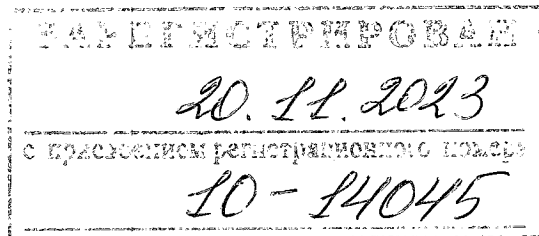 ЗАРЕГИСТРИРОВАН
20.11.2023
с присвоением регистрационного номера
10-14045